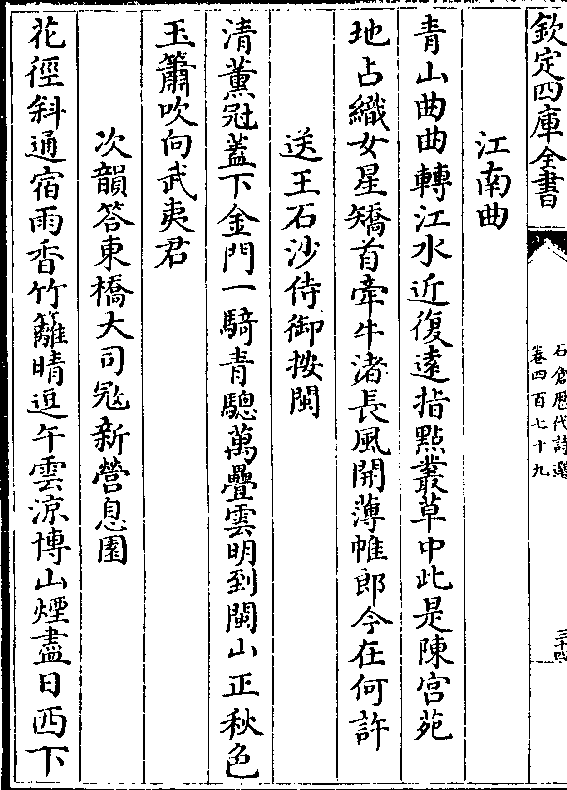 欽定四庫全書
石倉歷代詩選
卷四百七十九
三十四
江南曲
青山曲曲轉江水近復遠指點叢草中此是陳宫苑
地占織女星矯首牽牛渚長風開薄帷郎今在何許
送王石沙侍御按閩
清薰冠蓋下金門一騎青驄萬疊雲明到閩山正秋色
玉簫吹向武夷君
次韻答東橋大司宼新營息園
花徑斜通宿雨香竹籬晴逗午雲凉博山煙盡日西下